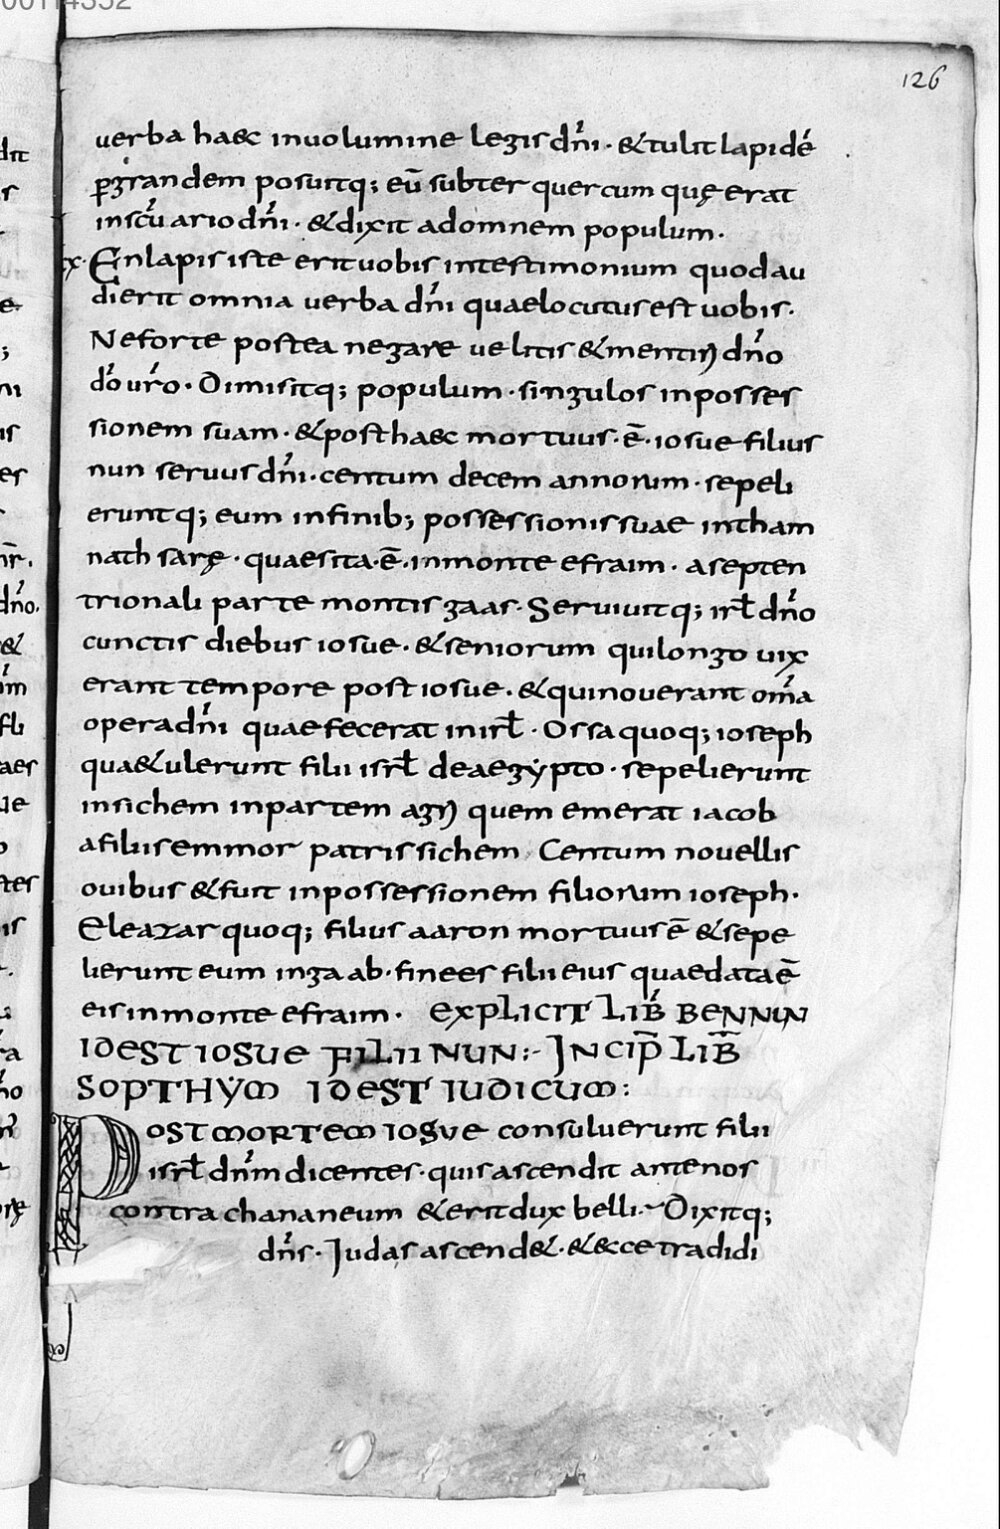 00114352
126
uerba haec inuolumine legis dn̄i · & tulit lapidē
p̱grandem posuitq; eū subter quercum quę erat
inscūario dn̄i · & dixit adomnem populum ·
x · En lapis iste erit uobis intestimonium quod au
dierit omnia uerba dn̄i quae locutus est uobis ·
Neforte postea negare uelitis & mentiri dn̄o
dō ur̄o · Dimisitq; populum · singulos inposses
sionem suam · & post haec mortuus · ē · iosue filius
nun seruus dn̄i · centum decem annorum · sepeli
eruntq; eum infinib; possessionis suae intham
nath sarę · quae sita · ē · inmonte efraim · asepten
trionali parte montis gaas · Seruiuitq; isrl̄ dn̄o
cunctis diebus iosue · & seniorum quilongo uix
erant tempore post iosue · & quinouerant om̄a
opera dn̄i quae fecerat in isrl̄ · Ossa quoq; ioseph
qua&ulerunt filii isrl̄ deaegẏpto · sepelierunt
insichem inpartem agri quem emerat iacob
afiliis emmor patris sichem Centum nouellis
ouibus & fuit inpossessionem filiorum ioseph ·
Eleazar quoq; filius aaron mortuus ē & sepe
lierunt eum ingaab · finees filii eius quae data ē
eis inmonte efraim · EXPLICIT LIB̄ BENNUN
IDEST IOSUE FILII NUN :- INCIP̄ LIB̄
SOPTHYM IDEST IUDICUM :
POST MORTEM IOSUE consuluerunt filii
isrl̄ dn̄m dicentes · quis ascendit ante nos
contra chananeum & erit dux belli · Dixitq;
dn̄s · Iudas ascend& · & ecce tradidi